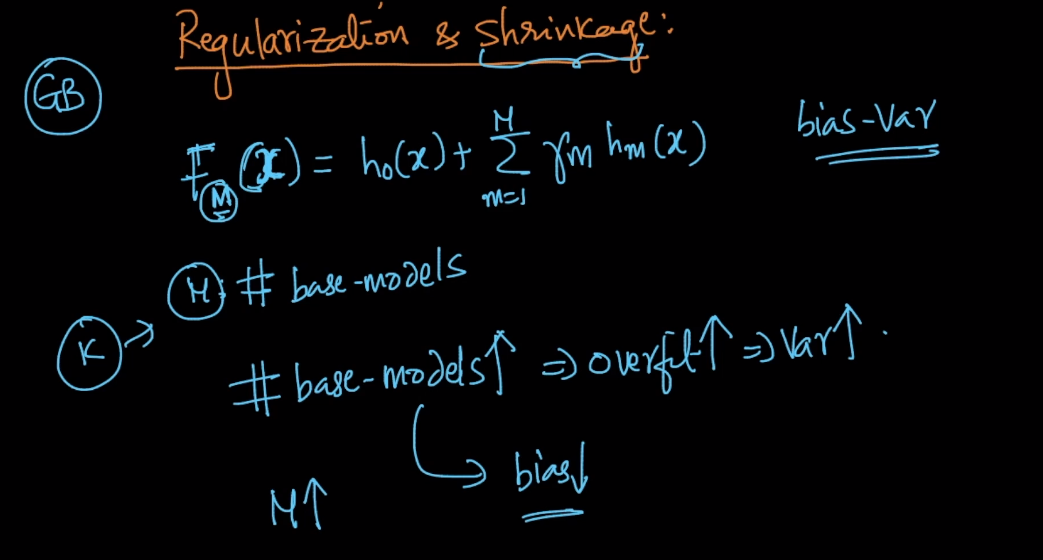 Regularization & Shrinkage:
GB
F_M(x) = h₀(x) + Σ_{m=1}^{M} γ_m h_m(x)
bias-Var
M: # base-models
K →
# base-models↑ ⇒ overfit↑ ⇒ Var↑.
bias↓
M↑